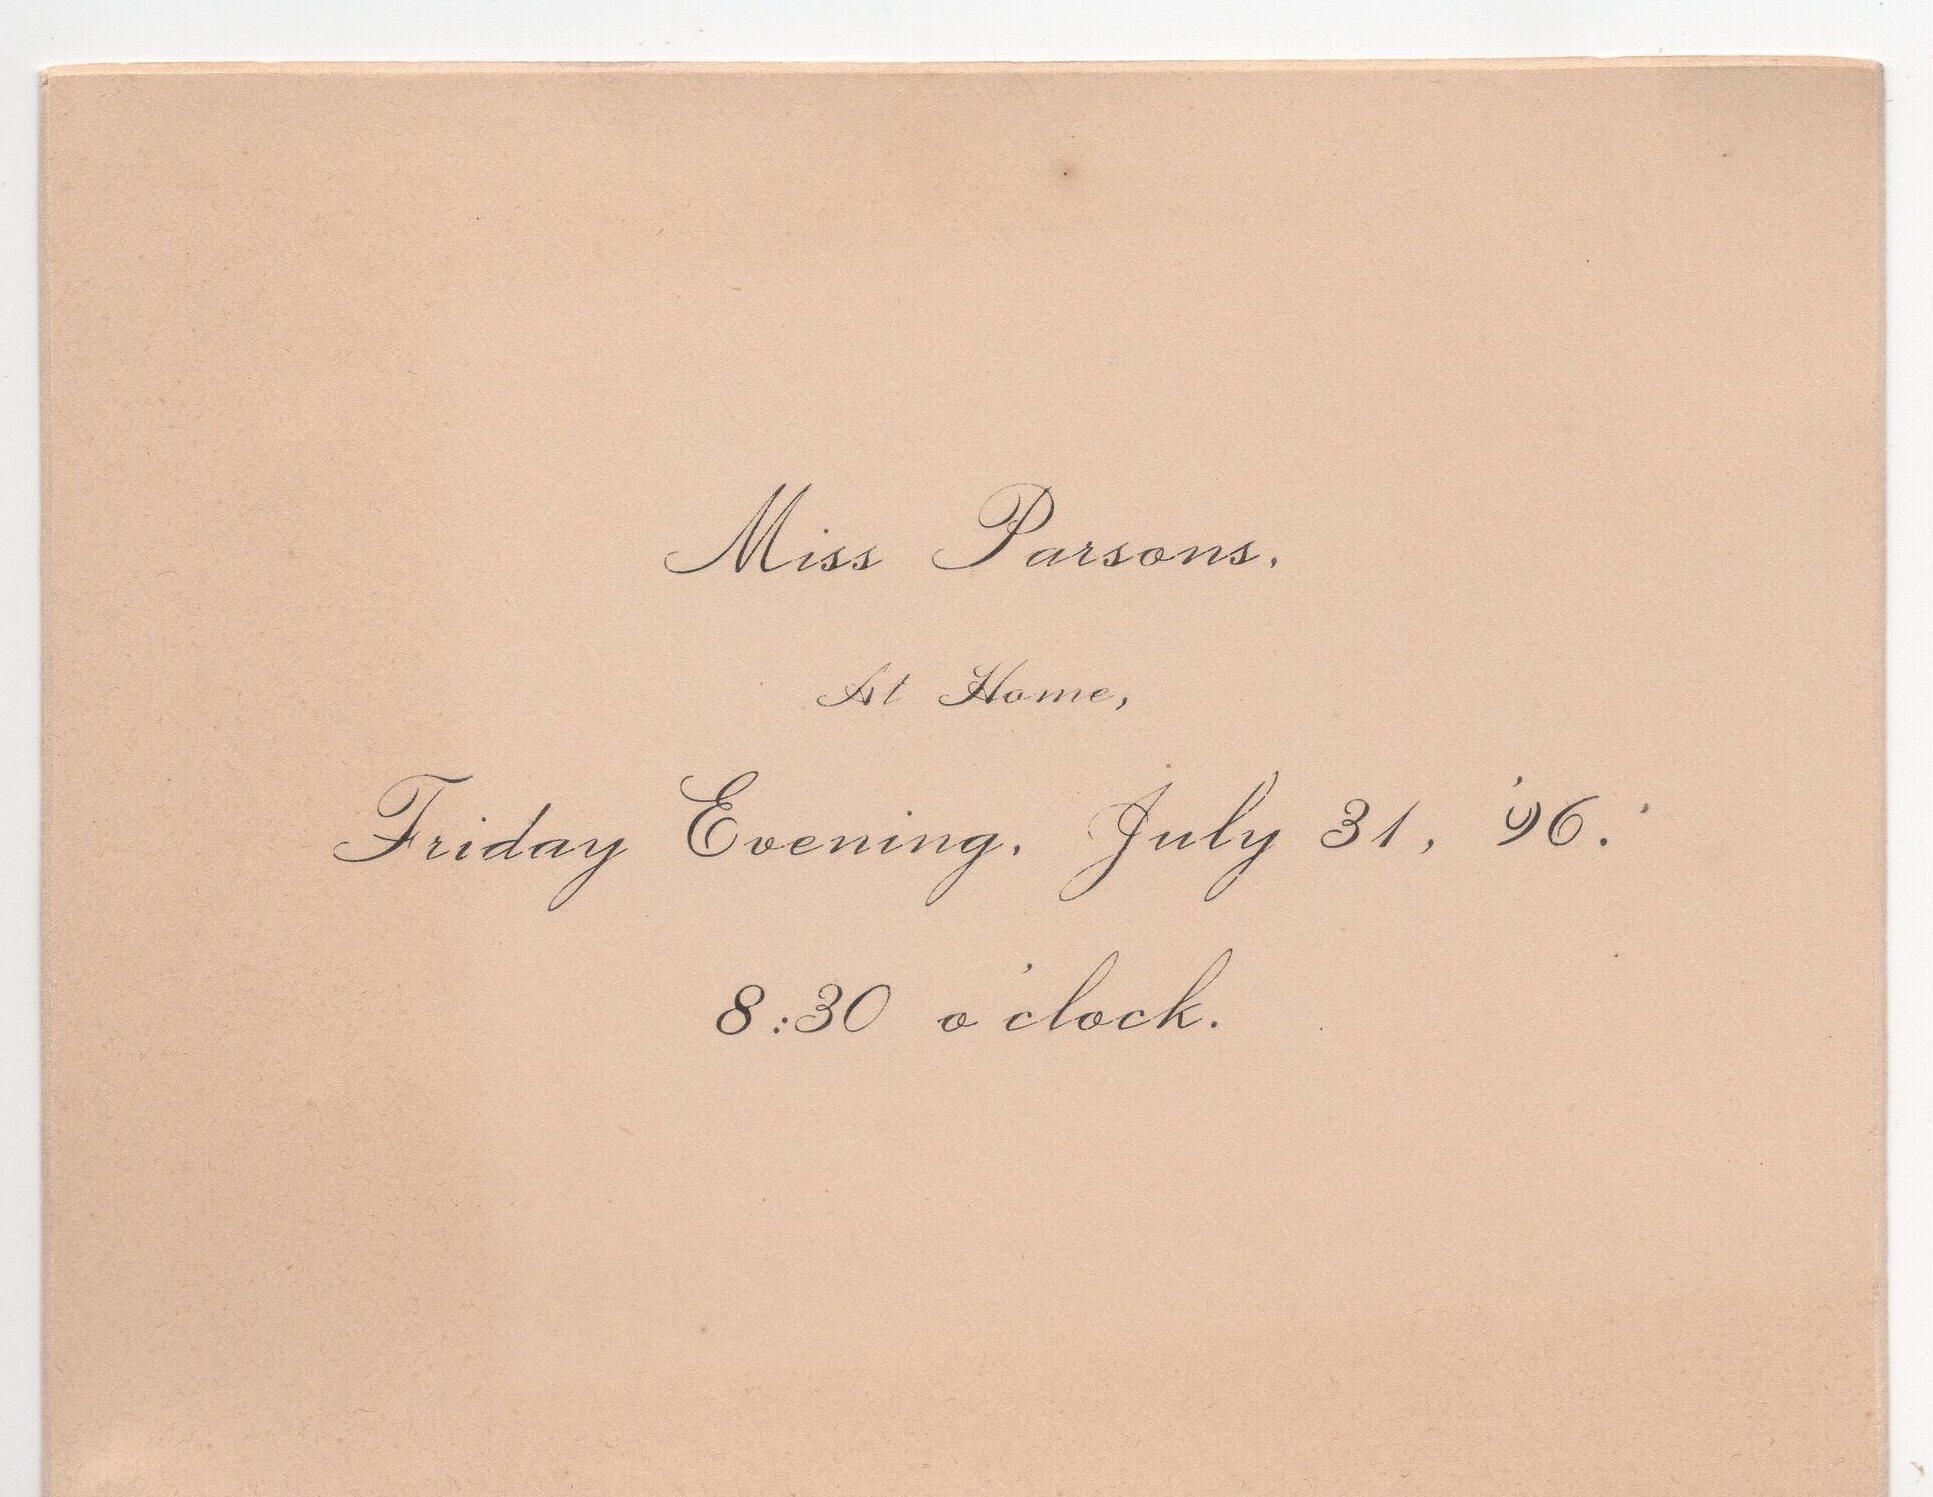 Miss Parsons.
At Home,
Friday Evening, July 31, '96.
8:30 o'clock.